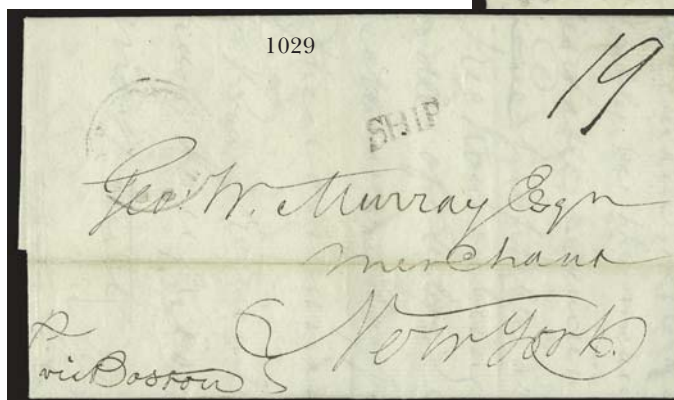 1029
19
SHIP
Geo. W. Murray Esqr
Merchant
New York.
via Boston